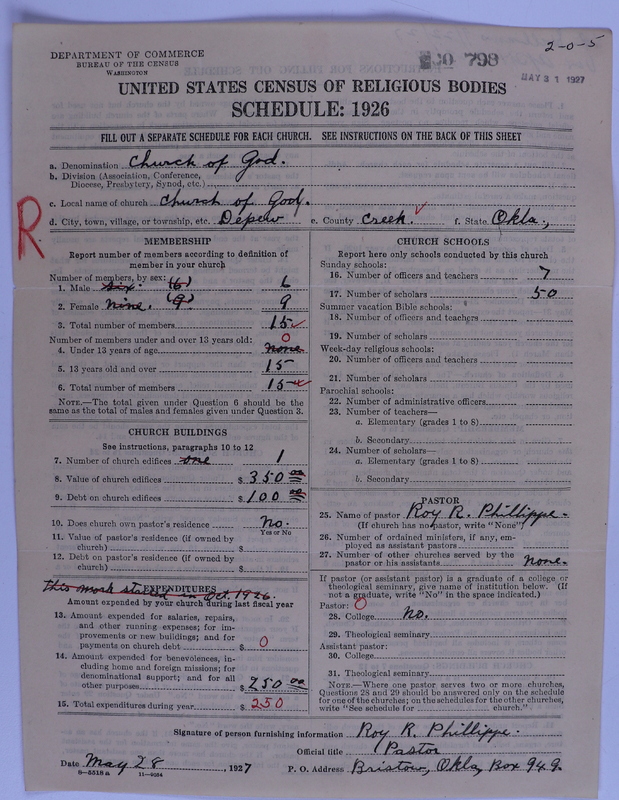 2-0-5
798
MAY 31 1927
DEPARTMENT OF COMMERCE
BUREAU OF THE CENSUS
WASHINGTON
UNITED STATES CENSUS OF RELIGIOUS BODIES
SCHEDULE: 1926
FILL OUT A SEPARATE SCHEDULE FOR EACH CHURCH. SEE INSTRUCTIONS ON THE BACK OF THIS SHEET
a. Denomination Church of God.
b. Division (Association, Conference,
Diocese, Presbytery, Synod, etc.)
c. Local name of church Church of God.
d. City, town, village, or township, etc. Depew e. County Creek. f. State Okla.,
R
MEMBERSHIP
Report number of members according to definition of
member in your church
Number of members, by sex:
1. Male six. (6) 6
2. Female nine. (9) 9
3. Total number of members 15
Number of members under and over 13 years old: 0
4. Under 13 years of age none
5. 13 years old and over 15
6. Total number of members 15
NOTE.—The total given under Question 6 should be
same as the total of males and females given under Question 3.
CHURCH BUILDINGS
See instructions, paragraphs 10 to 12
7. Number of church edifices one 1
8. Value of church edifices $ 350 00
9. Debt on church edifices $ 100 00
10. Does church own pastor's residence No.
Yes or No
11. Value of pastor's residence (if owned by
church) $
12. Debt on pastor's residence (if owned by
church) $
this work started in Oct. 1926.
EXPENDITURES
Amount expended by your church during last fiscal year
13. Amount expended for salaries, repairs,
and other running expenses; for im-
provements or new buildings; and for
payments on church debt $ 0
14. Amount expended for benevolences, in-
cluding home and foreign missions; for
denominational support; and for all
other purposes $ 250 00
15. Total expenditures during year $ 250
CHURCH SCHOOLS
Report here only schools conducted by this church
Sunday schools:
16. Number of officers and teachers 7
17. Number of scholars 50
Summer vacation Bible schools:
18. Number of officers and teachers
19. Number of scholars
Week-day religious schools:
20. Number of officers and teachers
21. Number of scholars
Parochial schools:
22. Number of administrative officers
23. Number of teachers—
a. Elementary (grades 1 to 8)
b. Secondary
24. Number of scholars—
a. Elementary (grades 1 to 8)
b. Secondary
PASTOR
25. Name of pastor Roy R. Phillippe.
(If church has no pastor, write "None")
26. Number of ordained ministers, if any, em-
ployed as assistant pastors
27. Number of other churches served by the
pastor or his assistants none.
If pastor (or assistant pastor) is a graduate of a college or
theological seminary, give name of institution below. (If
not a graduate, write "No" in the space indicated.)
Pastor: 0
28. College No.
29. Theological seminary
Assistant pastor:
30. College
31. Theological seminary
NOTE.—Where one pastor serves two or more churches,
Questions 28 and 29 should be answered only on the schedule
for one of the churches; on the schedules for the other churches,
write "See schedule for church."
Signature of person furnishing information Roy R. Phillippe.
Official title Pastor
Date May 28, 1927 P. O. Address Bristow, Okla, Box 949.
8-5518 a 11-9034